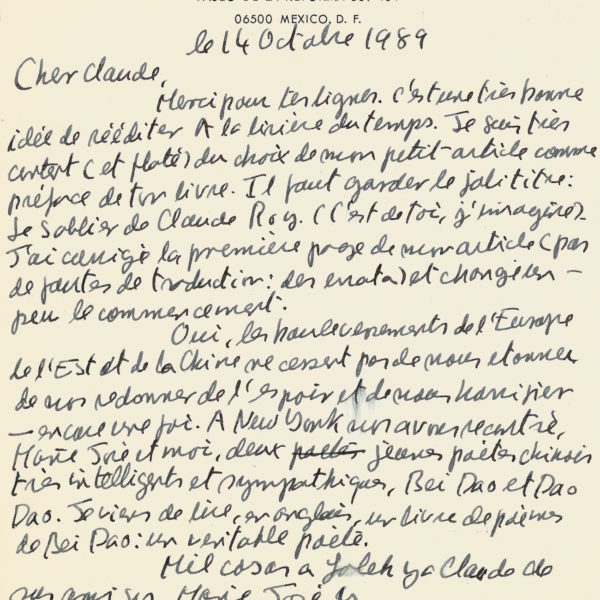 PASEO DE LA REFORMA
06500 MEXICO, D. F.
le 14 Octobre 1989
Cher Claude,
Merci pour tes lignes. C'est une très bonne
idée de rééditer A la lisière du temps. Je suis très
content (et flaté) du choix de mon petit article comme
préface de ton livre. Il faut garder le joli titre:
Le sablier de Claude Roy. (C'est de toi, j'imagine).
J'ai corrigé la première page de mon article (pas
de fautes de traduction: des errata) et changé un
peu le commencement.
Oui, les bouleversements de l'Europe
de l'Est et de la Chine ne cessent pas de nous etonner
de nos redonner de l'espoir et de nous horrifier
— encore une foi. A New York nous avons recontré,
Marie José et moi, deux poètes jeunes poètes chinois
très intelligents et sympathiques, Bei Dao et Dao
Dao. Je viens de lire, en anglais, un livre de poèmes
de Bei Dao: un veritable poète.
Mil cosas a Loleh y a Claude de
sus amigos Marie José y